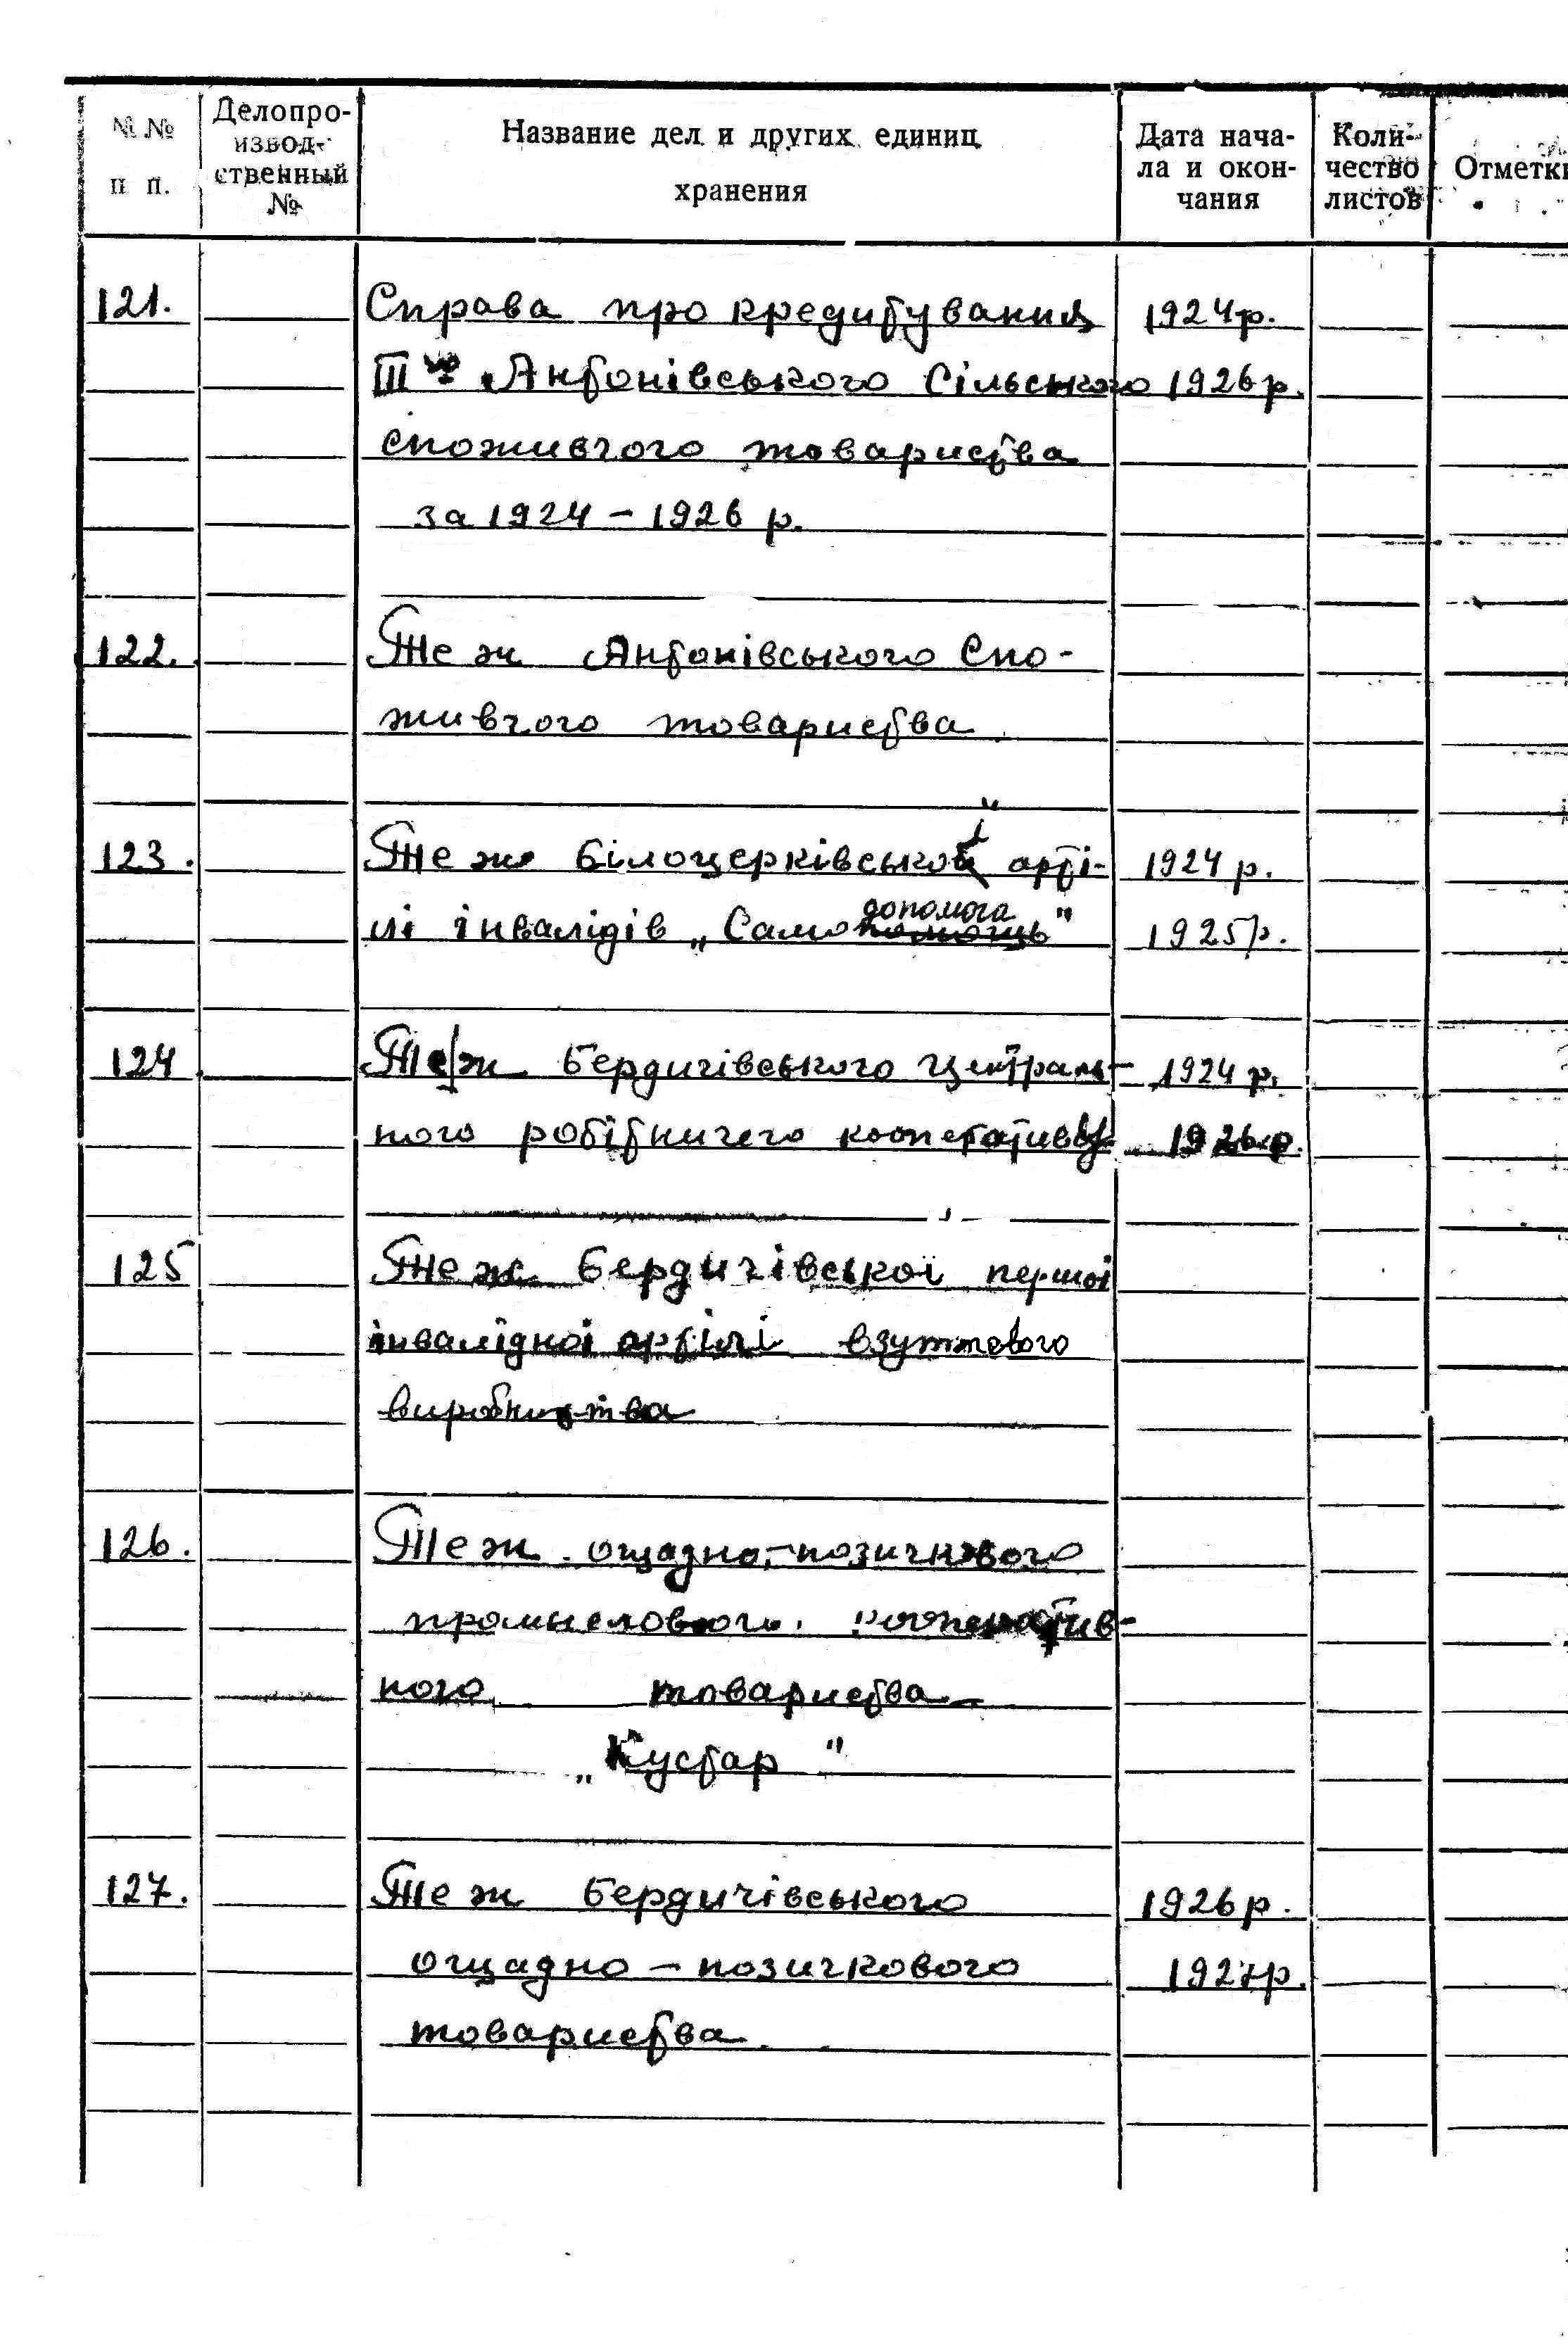 № №
п п.
Делопро-
извод-
ственный
№
Название дел и других единиц
хранения
Дата нача-
ла и окон-
чания
Коли-
чество
листов
Отметки
121. Справа про кредитування 1924р.
ІІІ го Антонівського Сільського 1926р.
споживчого товариства
за 1924 – 1926 р.
122. Теж Антонівського Спо-
живчого товариства
123. Теж Білоцерківської арті- 1924 р.
лі інвалідів „Самодопомога" 1925р.
124 Теж Бердичівського централь- 1924 р.
ного робітничего кооперативу 1926 р.
125 Теж Бердичівської першої
інвалідної артілі взуттєвого
виробництва
126. Теж ощадно-позичкового
промислового кооператив-
ного товариства
„Кустар"
127. Теж Бердичівського 1926р.
ощадно – позичкового 1927р.
товариства